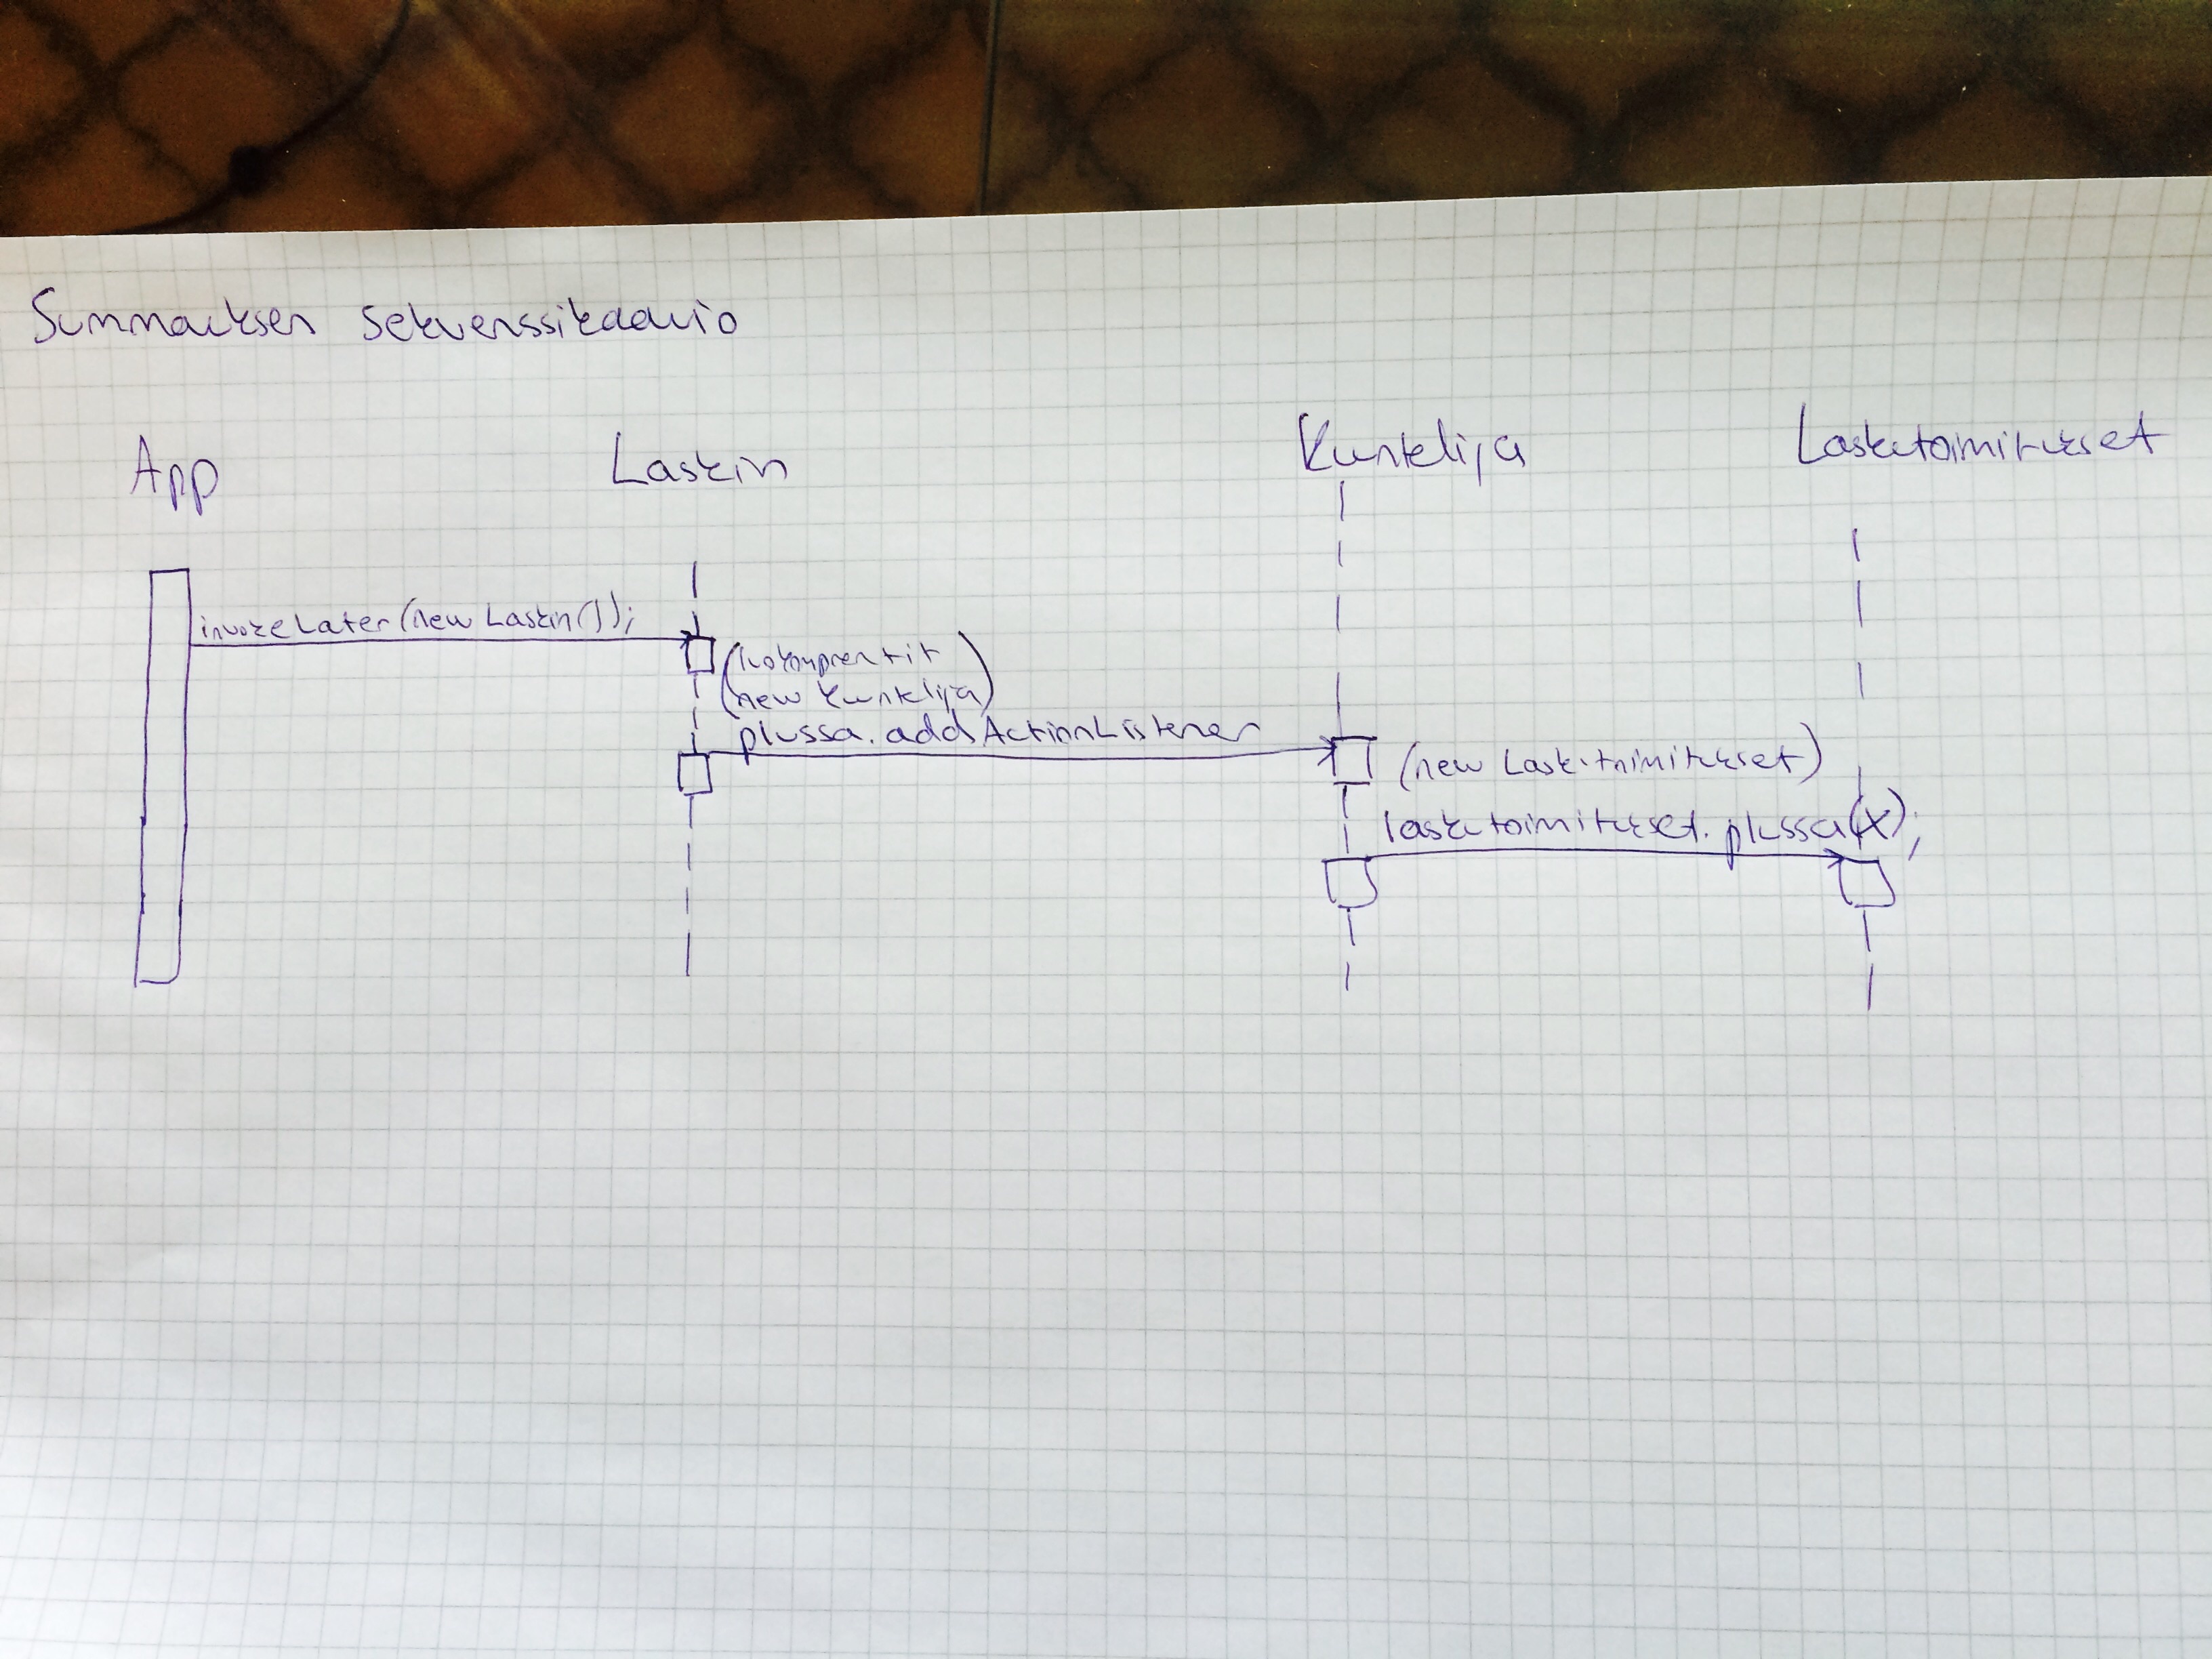 Summauksen sekvenssikaavio
App Laskin Kuuntelija Laskutoimitukset
invokeLater(new Laskin());
(luokomponentit
new Kuuntelija)
plussa.addActionListener
(new Laskutoimitukset)
laskutoimitukset.plussa(x);